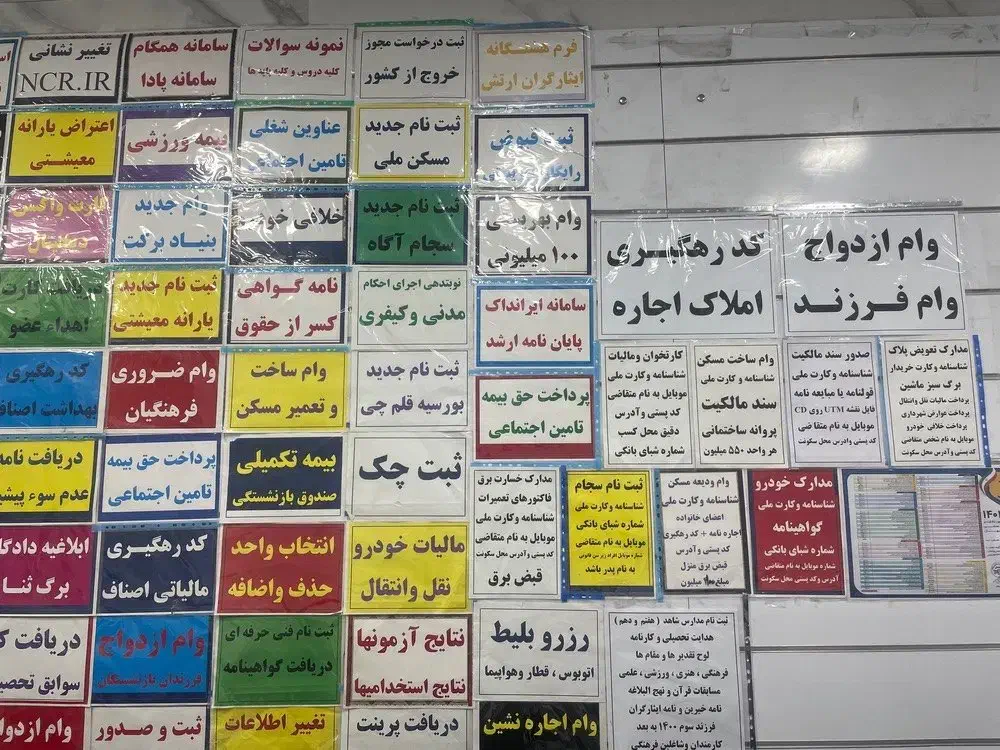 تغییر نشانی
NCR.IR
سامانه همگام
سامانه پادا
نمونه سوالات
کلیه دروس و کلیه پایه ها
ثبت درخواست مجوز
خروج از کشور
فرم
ایثارگران ارتش
اعتراض یارانه
معیشتی
بیمه ورزشی
عناوین شغلی
تامین اجتماعی
ثبت نام جدید
مسکن ملی
ثبت قبوض
کارت واکسن
دیجیتال
وام جدید
بنیاد برکت
خلافی خودرو
ثبت نام جدید
سجام آگاه
وام بهزیستی
۱۰۰ میلیونی
کد رهگیری
املاک اجاره
وام ازدواج
وام فرزند
دریافت کارت
اهداء عضو
ثبت نام جدید
یارانه معیشتی
نامه گواهی
کسر از حقوق
نوبتدهی اجرای احکام
مدنی وکیفری
سامانه ایرانداک
پایان نامه ارشد
کد رهگیری
بهداشت اصناف
وام ضروری
فرهنگیان
وام ساخت
و تعمیر مسکن
ثبت نام جدید
بورسیه قلم چی
پرداخت حق بیمه
تامین اجتماعی
کارتخوان ومالیات
شناسنامه وکارت ملی
موبایل به نام متقاضی
کد پستی و آدرس
دقیق محل کسب
شماره شبای بانکی
وام ساخت مسکن
شناسنامه وکارت ملی
سند مالکیت
پروانه ساختمانی
هر واحد ۵۵۰ میلیون
صدور سند مالکیت
شناسنامه وکارت ملی
قولنامه یا مبایعه نامه
فایل نقشه UTM روی CD
موبایل به نام متقاضی
کد پستی وادرس محل سکونت
مدارک تعویض پلاک
شناسنامه وکارت خریدار
برگ سبز ماشین
پرداخت مالیات نقل وانتقال
پرداخت عوارض شهرداری
پرداخت خلافی خودرو
موبایل به نام شخص متقاضی
دریافت نامه
عدم سوء پیشی
پرداخت حق بیمه
تامین اجتماعی
بیمه تکمیلی
صندوق بازنشستگی
ثبت چک
مدارک خسارت برق
فاکتورهای تعمیرات
شناسنامه وکارت ملی
شماره شبای بانکی
موبایل به نام متقاضی
کد پستی و آدرس محل سکونت
قبض برق
ثبت نام سجام
شناسنامه وکارت ملی
شماره شبای بانکی
موبایل به نام متقاضی
شماره موبایل افراد زیر سن قانونی
به نام پدر باشد
وام ودیعه مسکن
شناسنامه وکارت ملی
اعضای خانواده
اجاره نامه + کد رهگیری
کد پستی و آدرس
قبض برق منزل
مدارک خودرو
شناسنامه وکارت ملی
گواهینامه
شماره شبای بانکی
موبایل به نام متقاضی
آدرس وکد پستی محل سکونت
ابلاغیه دادگا
برگ ثنا
کد رهگیری
مالیاتی اصناف
انتخاب واحد
حذف واضافه
مالیات خودرو
نقل وانتقال
دریافت ک
سوابق تحصی
وام ازدواج
فرزندان بازنشستگان
ثبت نام فنی حرفه ای
دریافت گواهینامه
نتایج آزمونها
نتایج استخدامیها
رزرو بلیط
اتوبوس ، قطار وهواپیما
ثبت نام مدارس شاهد ( هفتم و دهم )
هدایت تحصیلی و کارنامه
لوح تقدیر ها و مقام ها
فرهنگی ، هنری ، ورزشی ، علمی
مسابقات قرآن و نهج البلاغه
نامه خیرین و نامه ایثارگران
فرزند سوم ۱۴۰۰ به بعد
کارمندان وشاغلین فرهنگی
وام ازدوا
ثبت و صدور
تغییر اطلاعات
دریافت پرینت
وام اجاره نشین